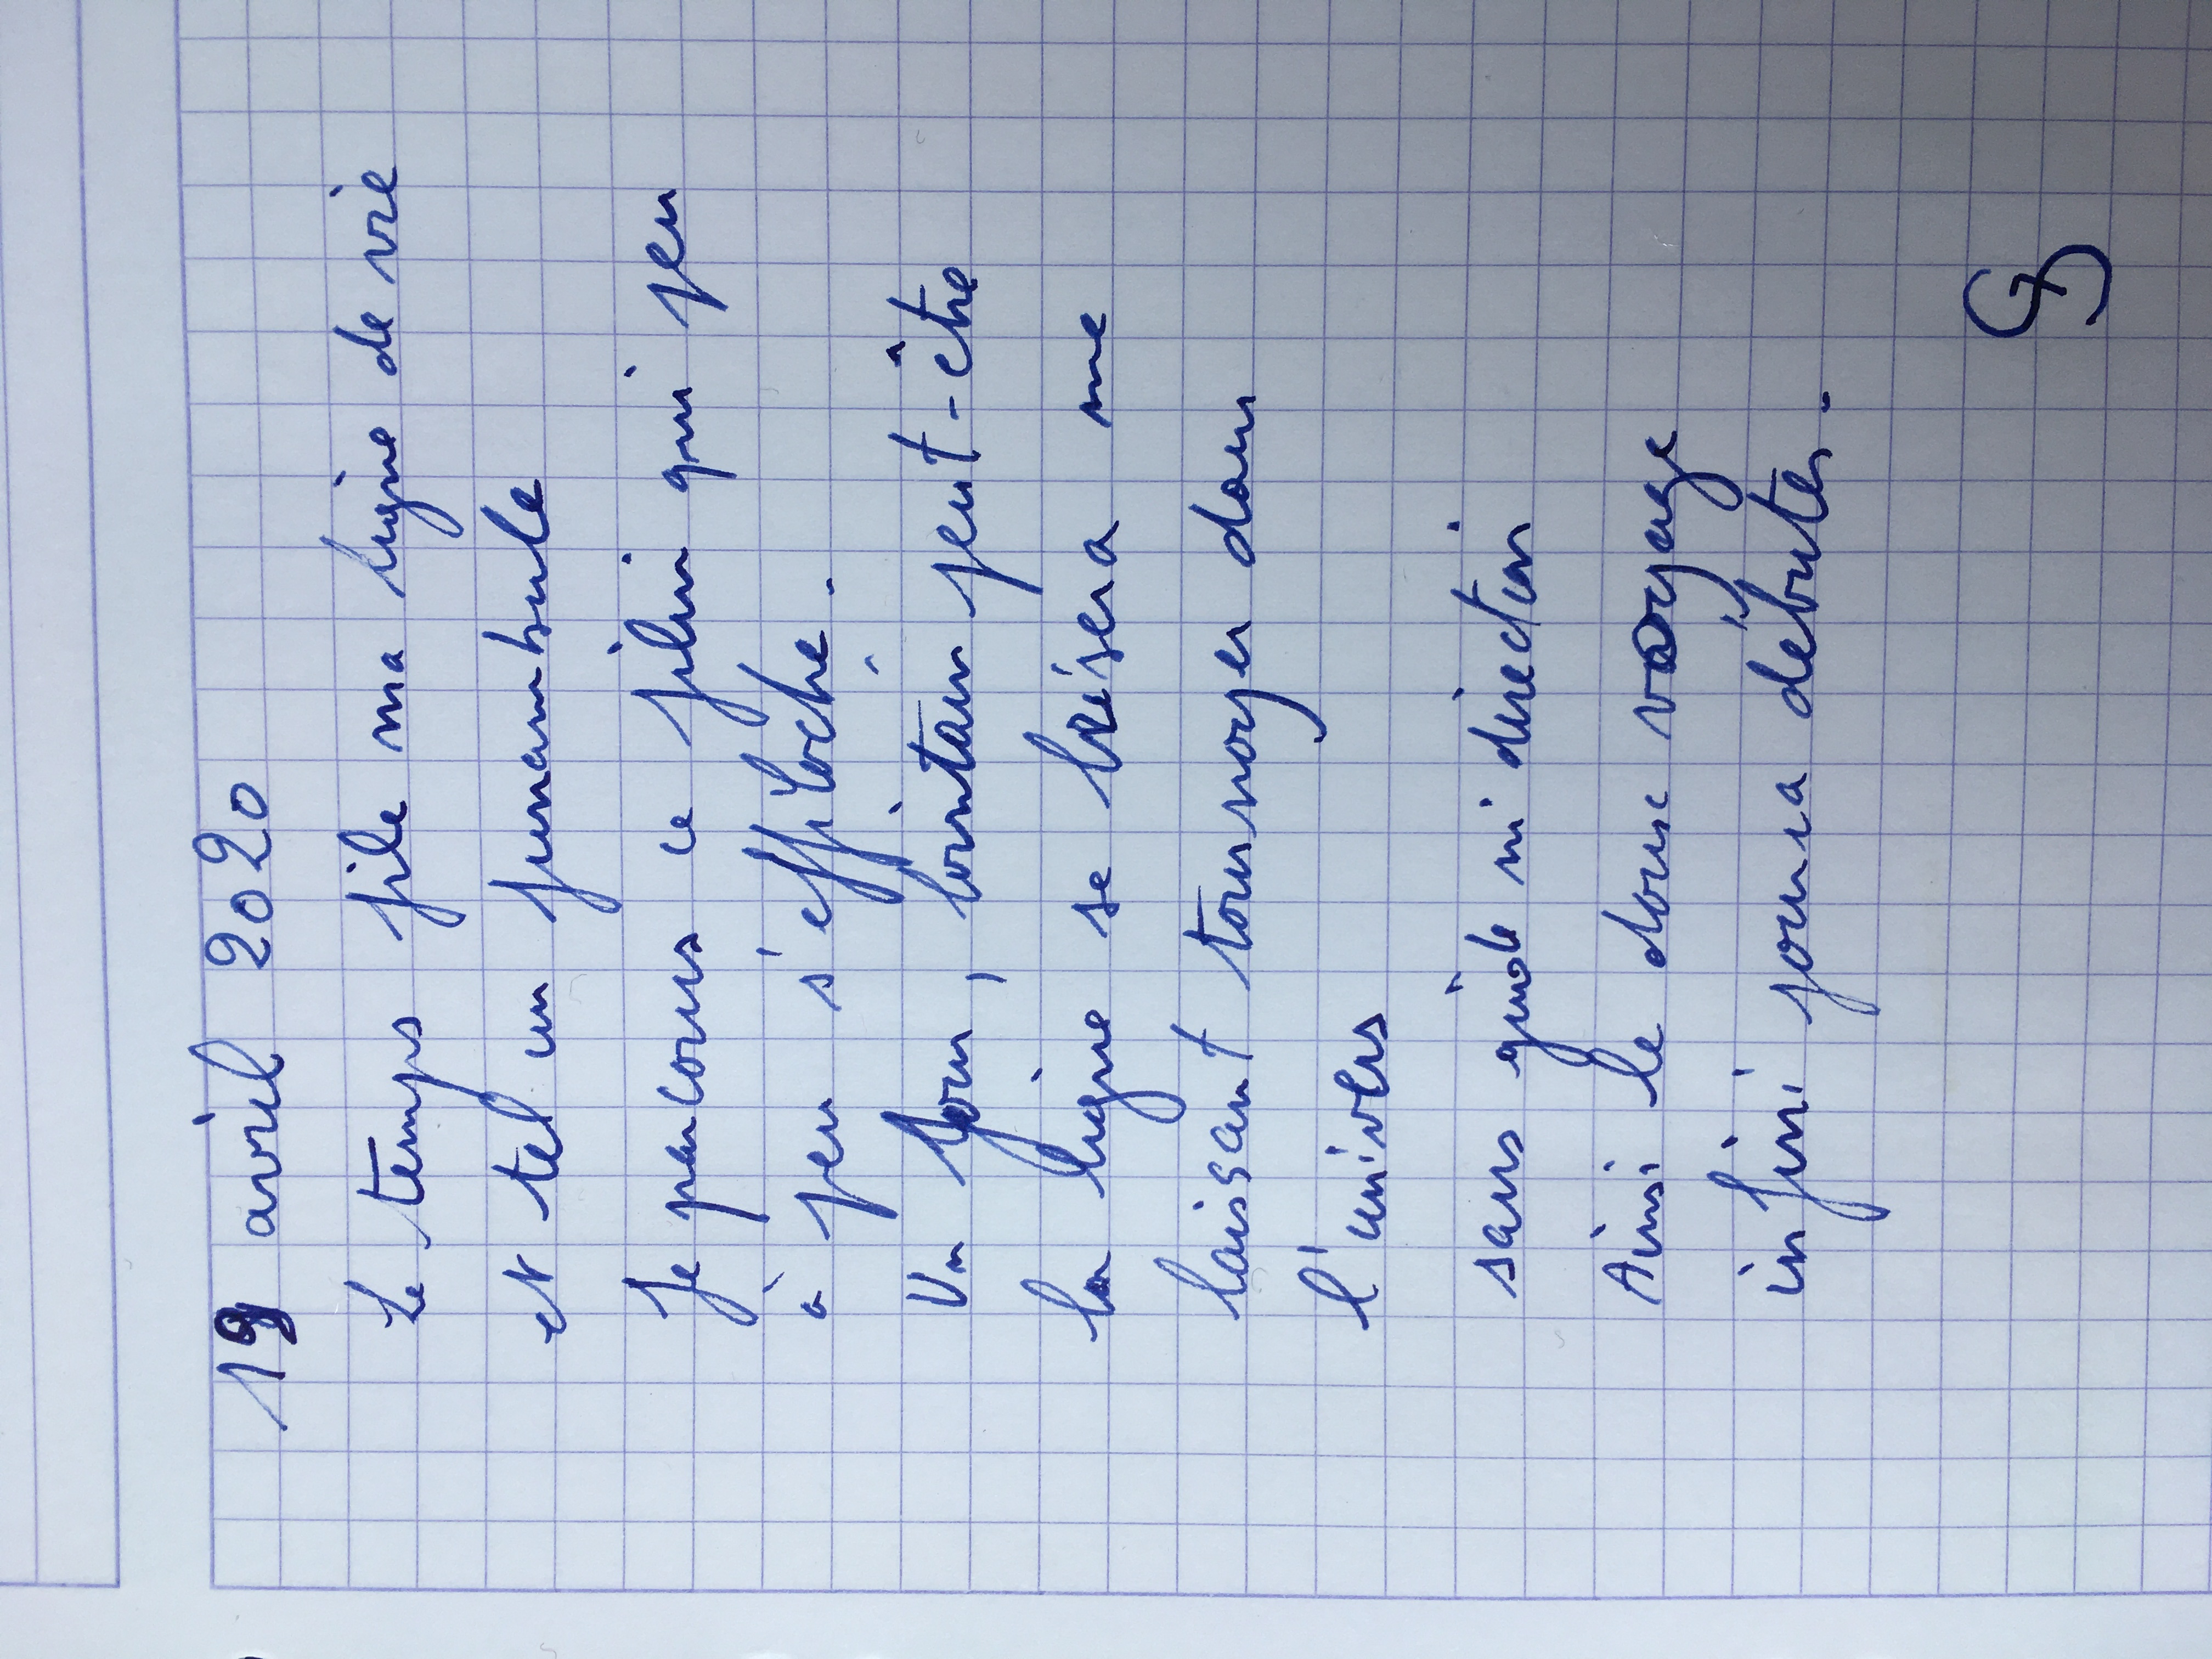 19 avril 2020
Le temps file ma ligne de vie
et tel un funambule
Je parcours ce filin qui peu
à peu s'effiloche.
Un jour, lointain peut-être
la ligne se brisera me
laissant tournoyer dans
l'univers
sans guide ni direction
Ainsi le doux voyage
infini pourra débuter.
GD